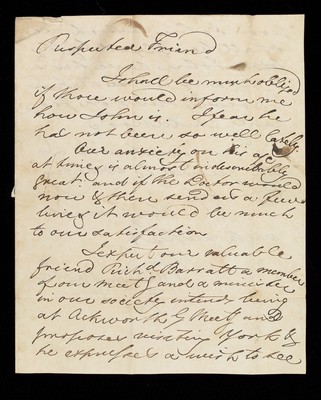 Respected Friend
I shall be much obliged
if thou would inform me
how John is. I fear he
has not been so well lately
Our anxiety on his ac
at times is almost indescribably
great. and if the Doctor would
now & then send us a few
lines it would be much
to our satisfaction
I expect our valuable
friend Richd Barratt a member
of our meetg and a minister
in our society intends being
at Ackworth G Meetg and
proposes visiting York &
he expresses a wish to see